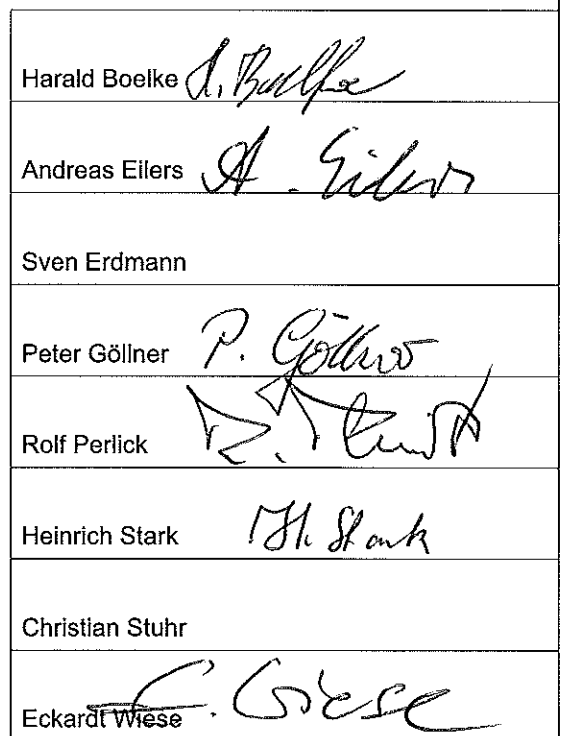 Harald Boelke H. Boelke
Andreas Eilers A. Eilers
Sven Erdmann
Peter Göllner P. Göllner
Rolf Perlick
Heinrich Stark H. Stark
Christian Stuhr
Eckardt Wiese E. Wiese